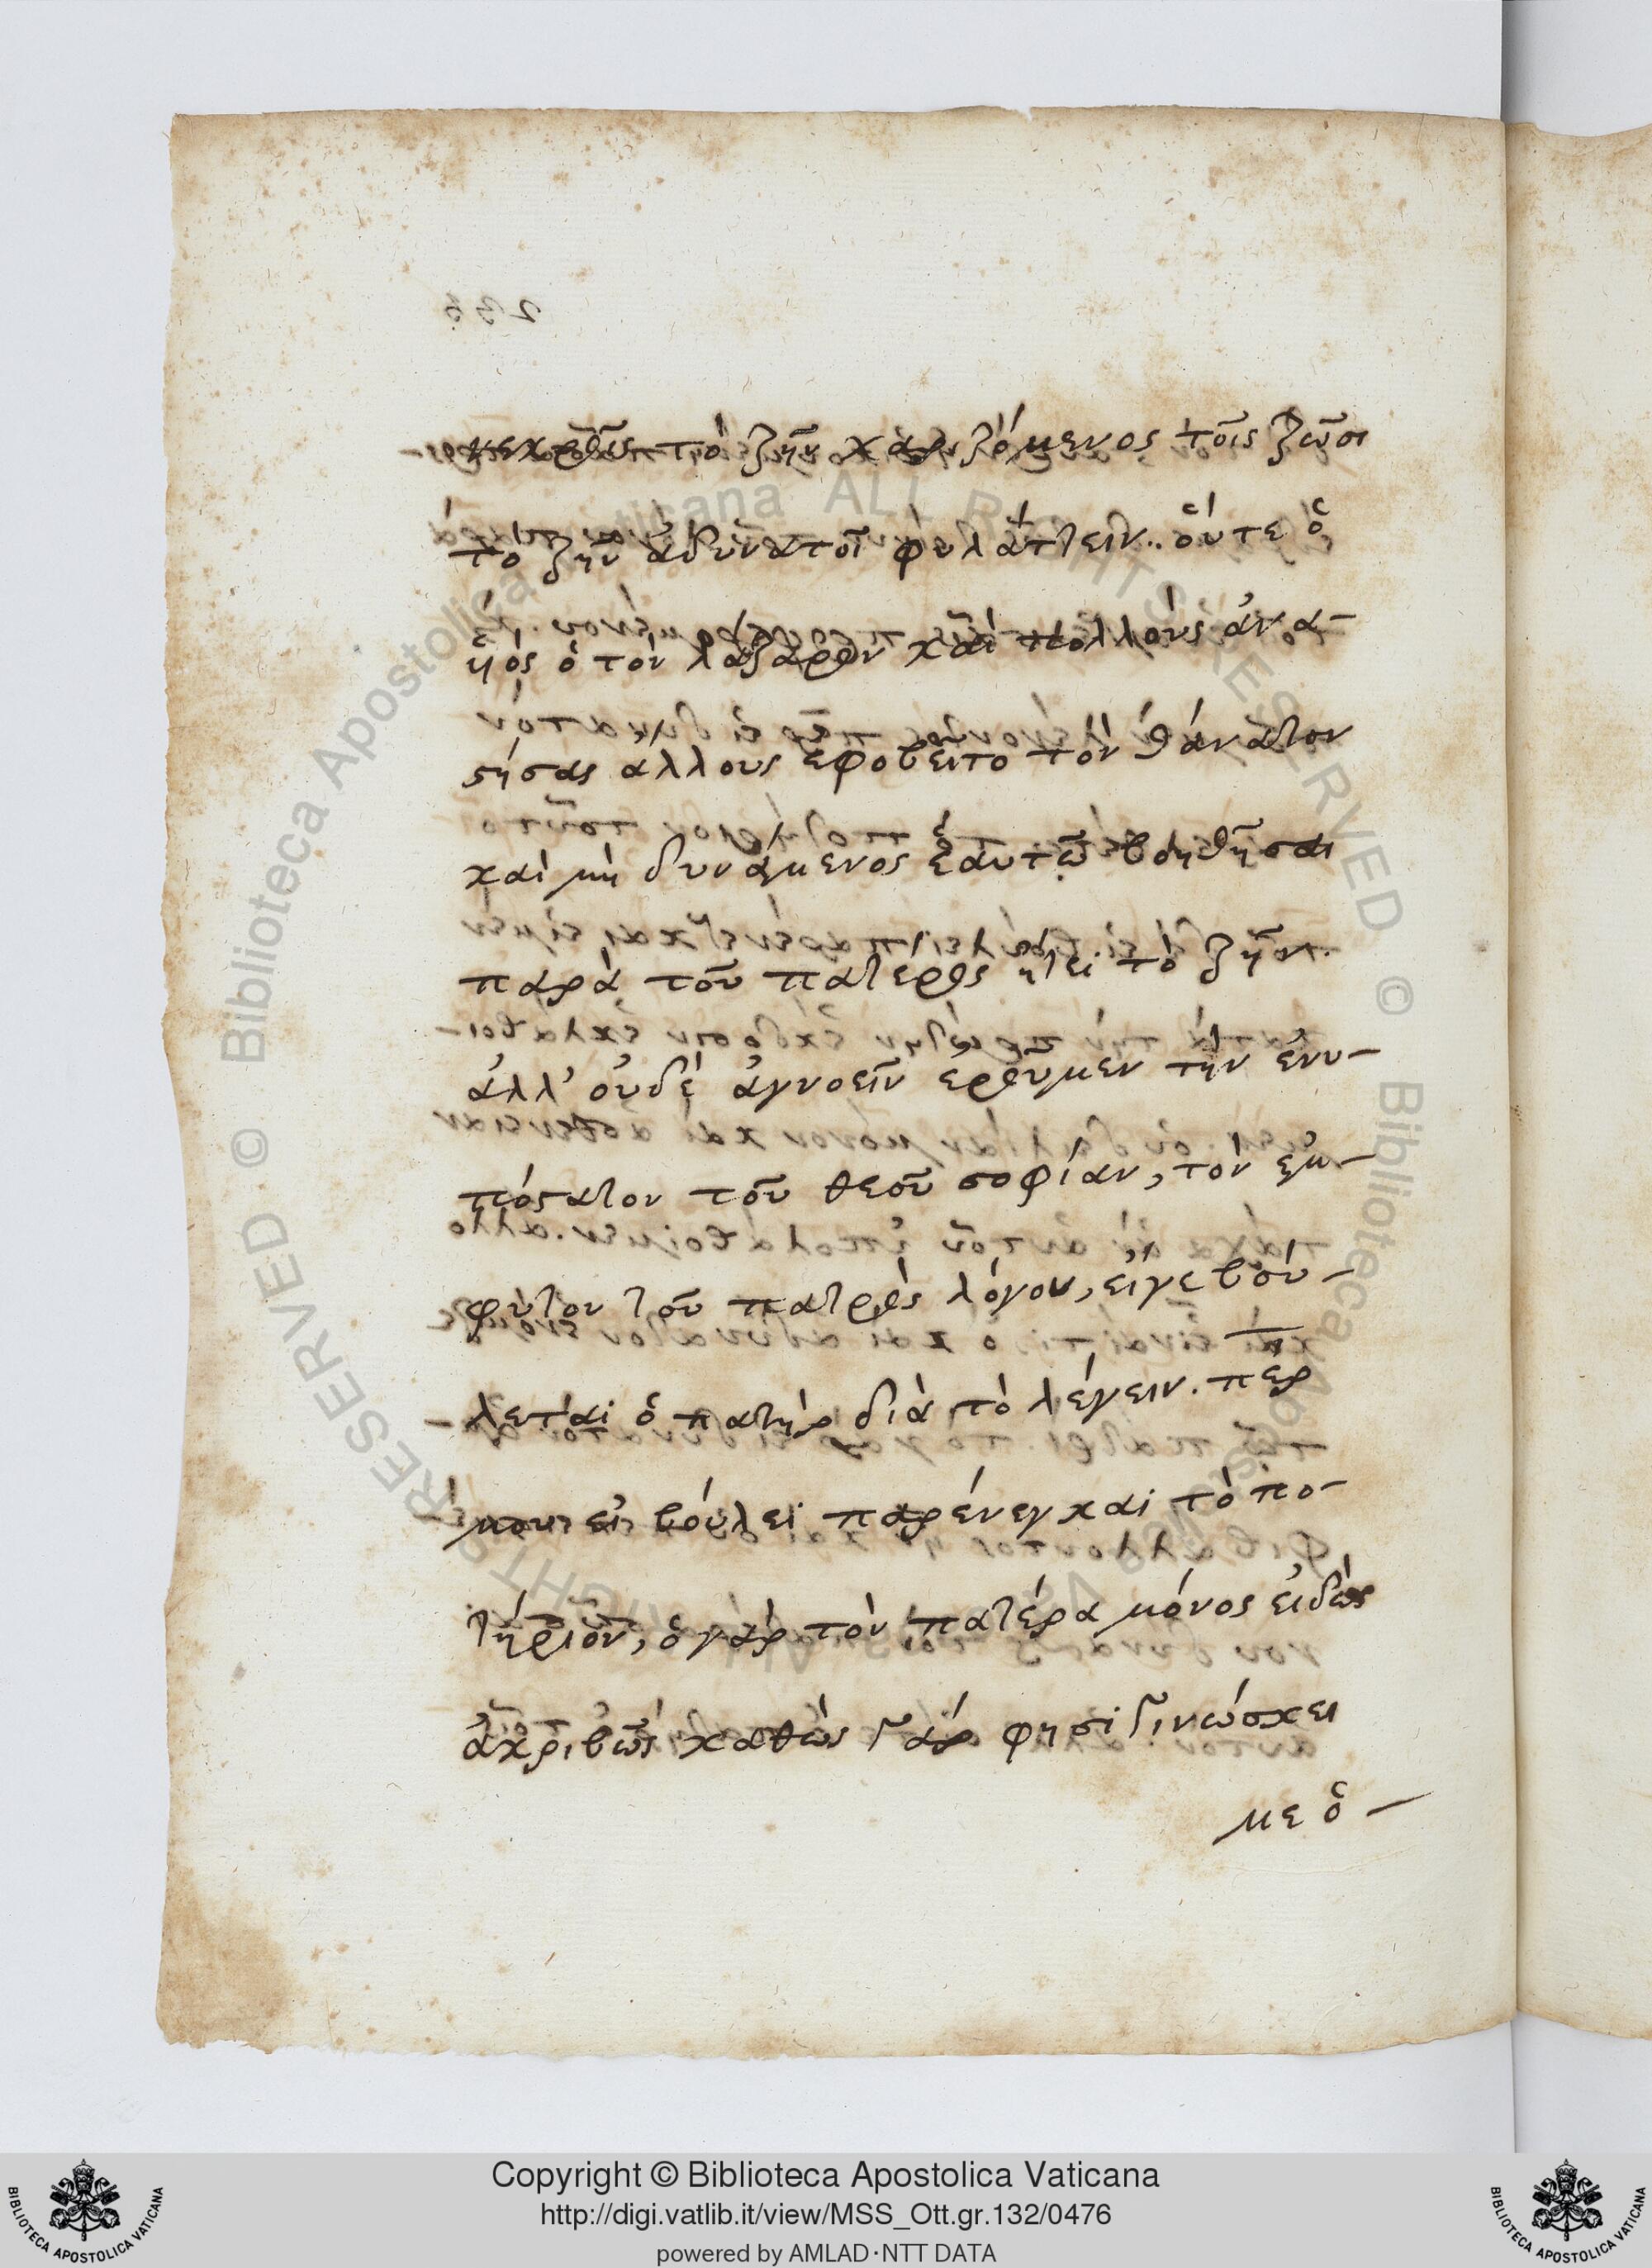 νεκροῖς τὸ ζῆν χαριζόμενος τοῖς ζῶσι
τὸ ζῆν ἀδυνατοῖ φυλάττειν. οὔτε ὁ
ὑιὸς ὁ τὸν λάζαρον καὶ πολλοὺς ἀνα-
στήσας ἄλλους ἐφοβεῖτο τὸν θάνατον
καὶ μὴ δυνάμενος ἑαυτῷ βοηθῆσαι
παρὰ τοῦ πατέρος ἤτει τὸ ζῆν.
ἀλλ' οὐδὲ ἀγνοεῖν ἐροῦμεν τὴν ἐνυ-
πόστατον τοῦ θεοῦ σοφίαν, τὸν ἔμ-
φυτον τοῦ πατρὸς λόγον, εἴγε βού-
λεται ὁ πατὴρ διὰ τὸ λέγειν. περ
μου εἰ βούλει παρένεγκαι τὸ πο-
τήριον, ὁ γὰρ τὸν πατέρα μόνος εἰδὼς
ἀκριβῶς καθὼς γάρ φησι γινώσκει
με ὁ -
Copyright © Biblioteca Apostolica Vaticana
http://digi.vatlib.it/view/MSS_Ott.gr.132/0476
powered by AMLAD·NTT DATA
BIBLIOTECA APOSTOLICA VATICANA
BIBLIOTECA APOSTOLICA VATICANA